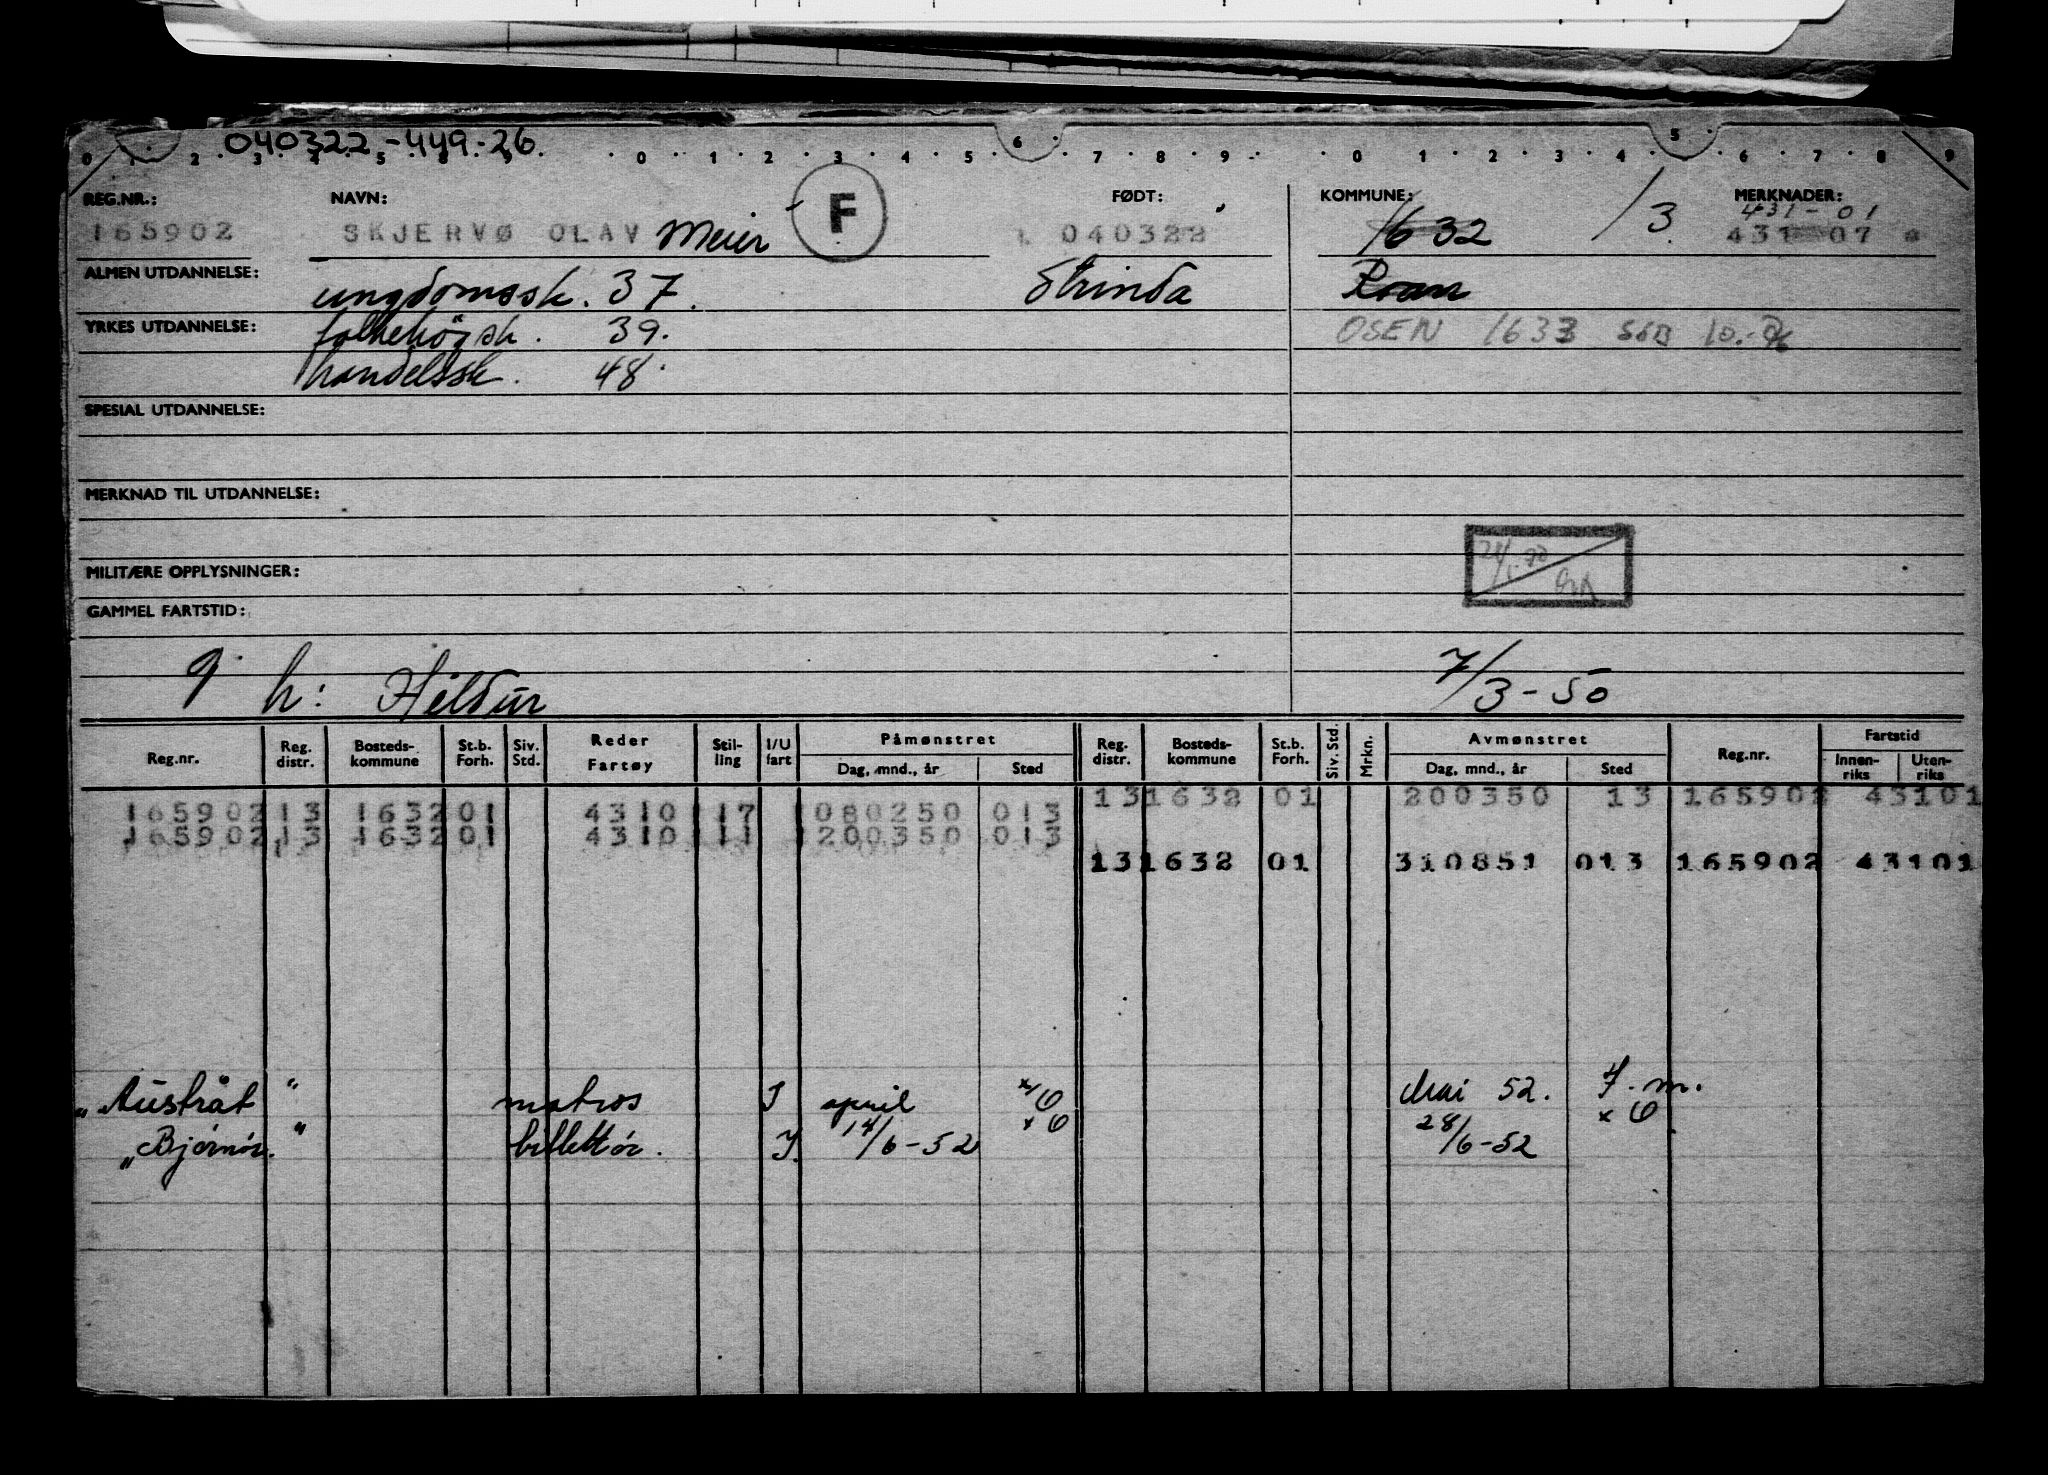 040322-449-26
0 1 2 3 4 5 6 0 1 2 3 4 5 6 7 8 9 0 1 2 3 4 5 6 7 8 9
REG.NR.: NAVN: FØDT: KOMMUNE: MERKNADER:
431-01
165902 SKJERVØ OLAV Meier F 040322 1632 /3 431 07
ALMEN UTDANNELSE: ungdomssk. 37. Strinda Roan
YRKES UTDANNELSE: folkehögsk. 39. OSEN 1633
handelssk. 48.
SPESIAL UTDANNELSE:
MERKNAD TIL UTDANNELSE:
MILITÆRE OPPLYSNINGER:
GAMMEL FARTSTID:
g h: Hildur 7/3-50
Reg.nr. Reg. distr. Bosteds-kommune St.b. Forh. Siv. Std. Reder Fartøy Stil-ling I/U fart Påmønstret Dag, mnd., år Sted Reg. distr. Bosteds-kommune St.b. Forh. Siv. Std. Mrkn. Avmønstret Dag, mnd., år Sted Reg.nr. Fartstid Innen-riks Uten-riks
131632 01 200350 13 165902 43101
165902 13 1632 01 4310 17 080250 013
165902 13 1632 01 4310 11 200350 013
131632 01 310851 013 165902 43101
"Austråt" matros I april Mai 52. f.m.
"Bjørnør." billettør. I. 14/6-52 28/6-52